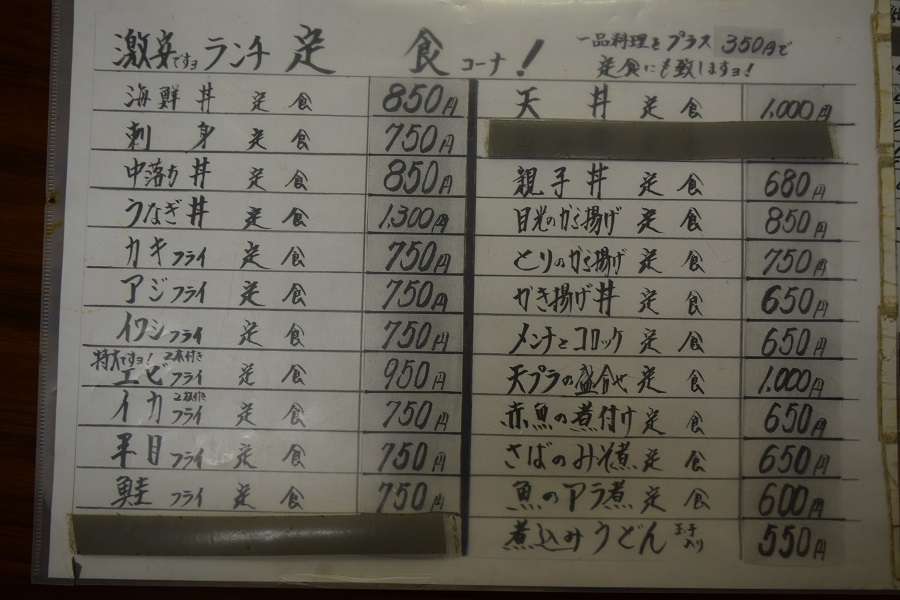 激安ですョランチ定 食コーナ!
一品料理をプラス350円で
定食にも致しますョ!
海鮮丼 定食 850円
刺身 定食 750円
中落ち丼 定食 850円
うなぎ丼 定食 1,300円
カキフライ 定食 750円
アジフライ 定食 750円
イワシフライ 定食 750円
特大ですョ! 2本付き
エビフライ 定食 950円
2枚付き
イカフライ 定食 750円
平目フライ 定食 750円
鮭フライ 定食 750円
天丼 定食 1,000円
親子丼 定食 680円
目光のから揚げ 定食 850円
とりのから揚げ 定食 750円
かき揚げ丼 定食 650円
メンチとコロッケ 定食 650円
天プラの盛合せ 定食 1,000円
赤魚の煮付け 定食 650円
さばのみそ煮 定食 650円
魚のアラ煮 定食 600円
煮込みうどん 玉子入り 550円